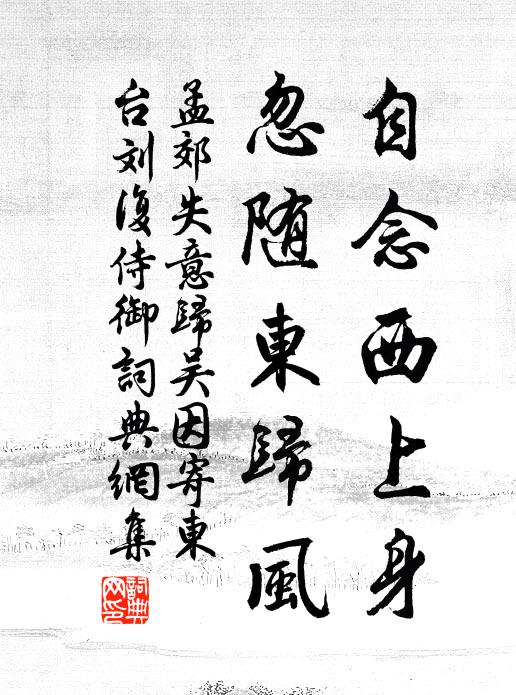 自念西上身
忽随東歸風
孟郊失意歸吴因寄東
台刘復侍御詞典網集
詞典网印